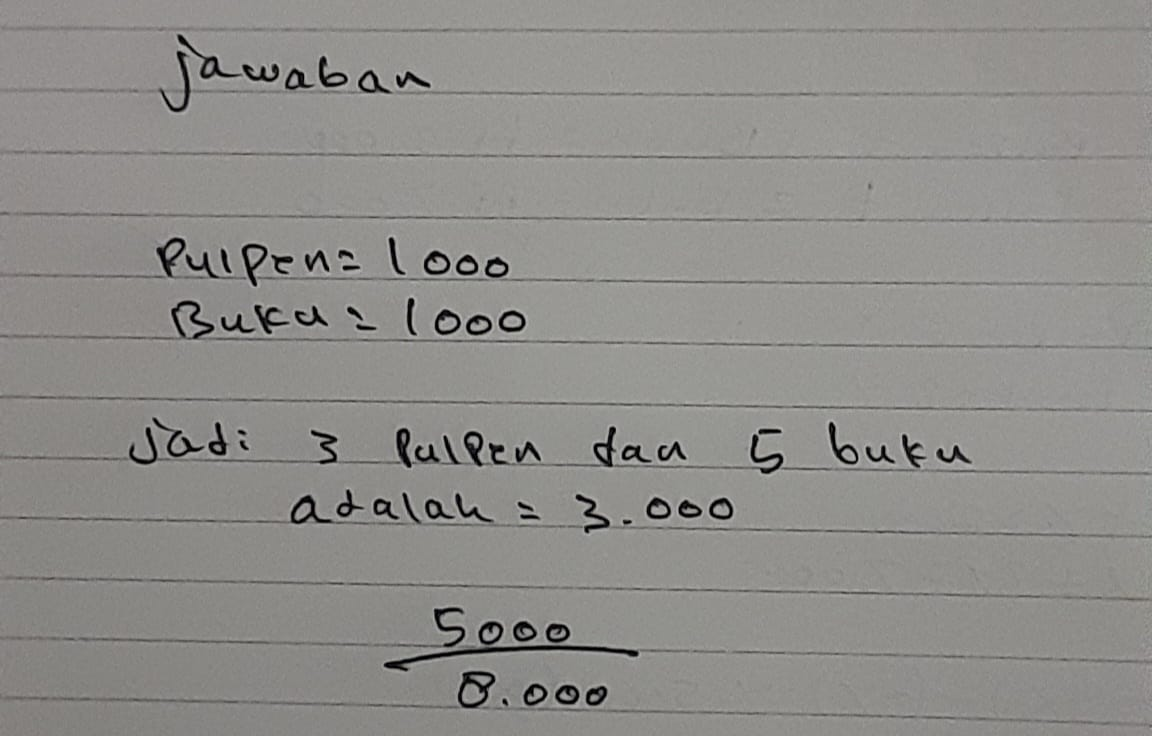 jawaban
Pulpen = 1000
Buku = 1000
Jadi 3 Pulpen dan 5 buku
adalah = 3.000
5000
8.000